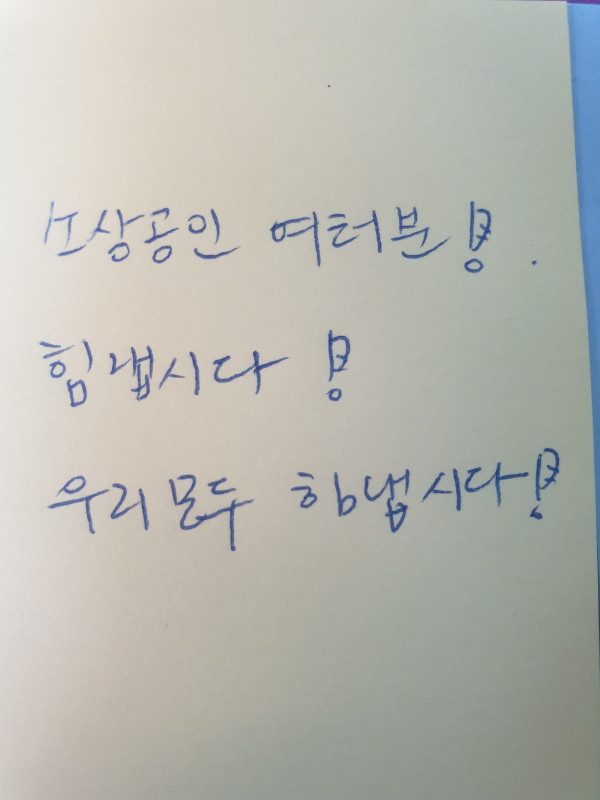 소상공인 여러분!
힘냅시다!
우리모두 힘냅시다!